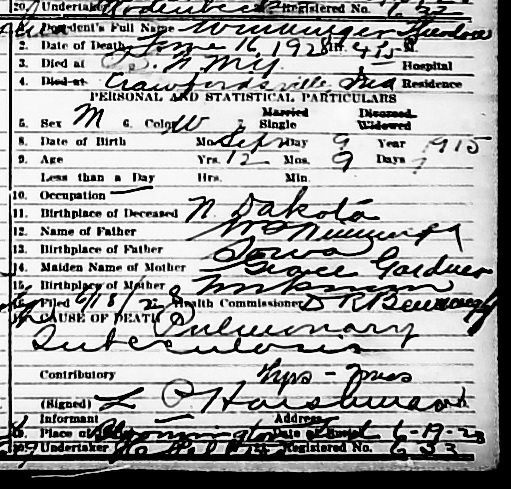 20. Undertaker Registered No.
1. Decedent's Full Name Theodore
2. Date of Death June 16, 1928
3. Died at Hospital
4. Died at Crawfordsville, Ind Residence
PERSONAL AND STATISTICAL PARTICULARS
5. Sex M 6. Color W 7. Married Single Divorced Widowed
8. Date of Birth Mo. Sept Day 9 Year 1915
9. Age Yrs. 12 Mos. 9 Days 7
Less than a Day Hrs. Min.
10. Occupation —
11. Birthplace of Deceased N. Dakota
12. Name of Father
13. Birthplace of Father Iowa
14. Maiden Name of Mother Grace Gardner
15. Birthplace of Mother unknown
16. Filed 6/18/28 Health Commissioner D R
17. CAUSE OF DEATH Pulmonary
Tuberculosis
Contributory Yrs - Mos
(Signed) L P
Informant — Address
19. Place of Date of Burial 6-19-28
20. Undertaker 21. Registered No. 633